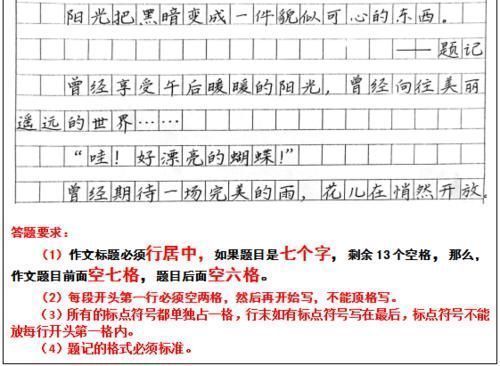 阳光把黑暗变成一件貌似可心的东西。
——题记
曾经享受午后暖暖的阳光，曾经向往美丽
遥远的世界……
“哇！好漂亮的蝴蝶！”
曾经期待一场完美的雨，花儿在悄然开放。
答题要求：
（1）作文标题必须行居中，如果题目是七个字，剩余13个空格，那么，
作文题目前面空七格，题目后面空六格。
（2）每段开头第一行必须空两格，然后再开始写，不能顶格写。
（3）所有的标点符号都单独占一格，行末如有标点符号写在最后，标点符号不能
放每行开头第一格内。
（4）题记的格式必须标准。